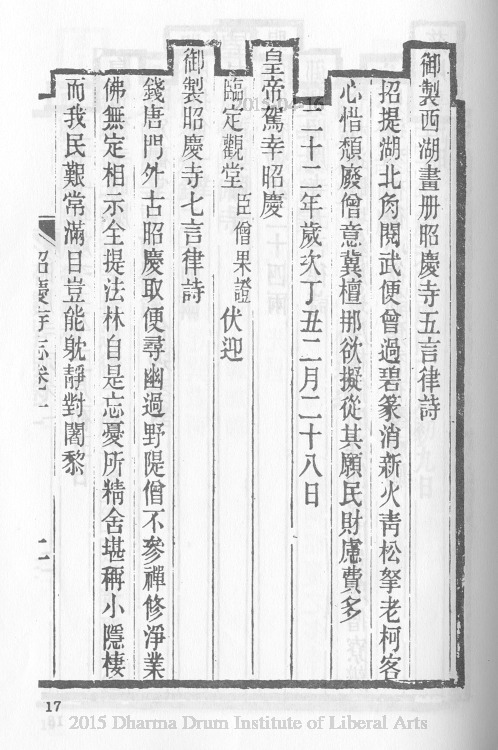 御製西湖畫册昭慶寺五言律詩
招提湖北角閱武便曾過碧篆消新火靑松拏老柯客
心惜頹廢僧意冀檀那欲擬從其願民財慮費多
二十二年歲次丁丑二月二十八日
皇帝駕幸昭慶
臨定觀堂臣僧果證伏迎
御製昭慶寺七言律詩
錢唐門外古昭慶取便尋幽過野隄僧不參禪修淨業
佛無定相示全提法林自是忘憂所精舍堪稱小隱棲
而我民艱常滿目豈能躭靜對闍黎
昭慶寺志卷一 二
17
2015 Dharma Drum Institute of Liberal Arts